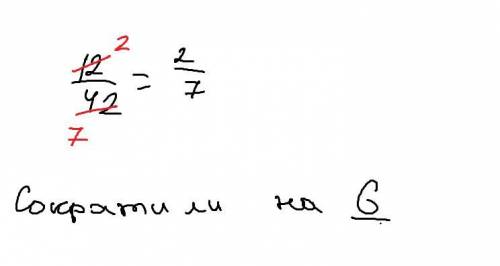 12/42 = 2/7
2
7
Сократили на 6